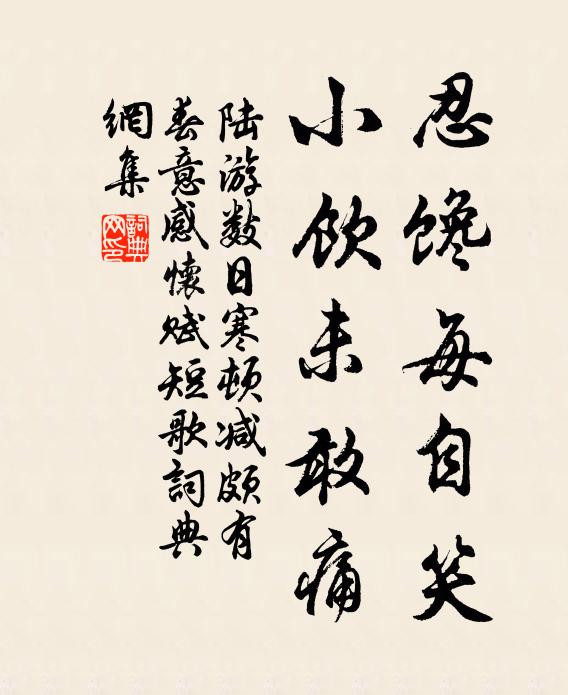 忍馋每自笑
小饮未敢痛
陆游数日寒顿减颇有
春意感懷赋短歌詞典
網集
詞典
网印